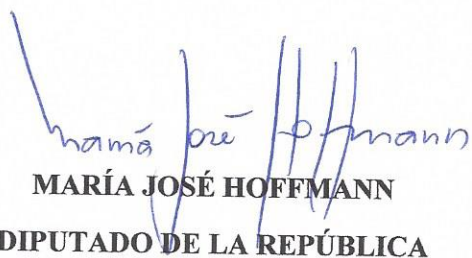 María José Hoffmann
MARÍA JOSÉ HOFFMANN
DIPUTADO DE LA REPÚBLICA